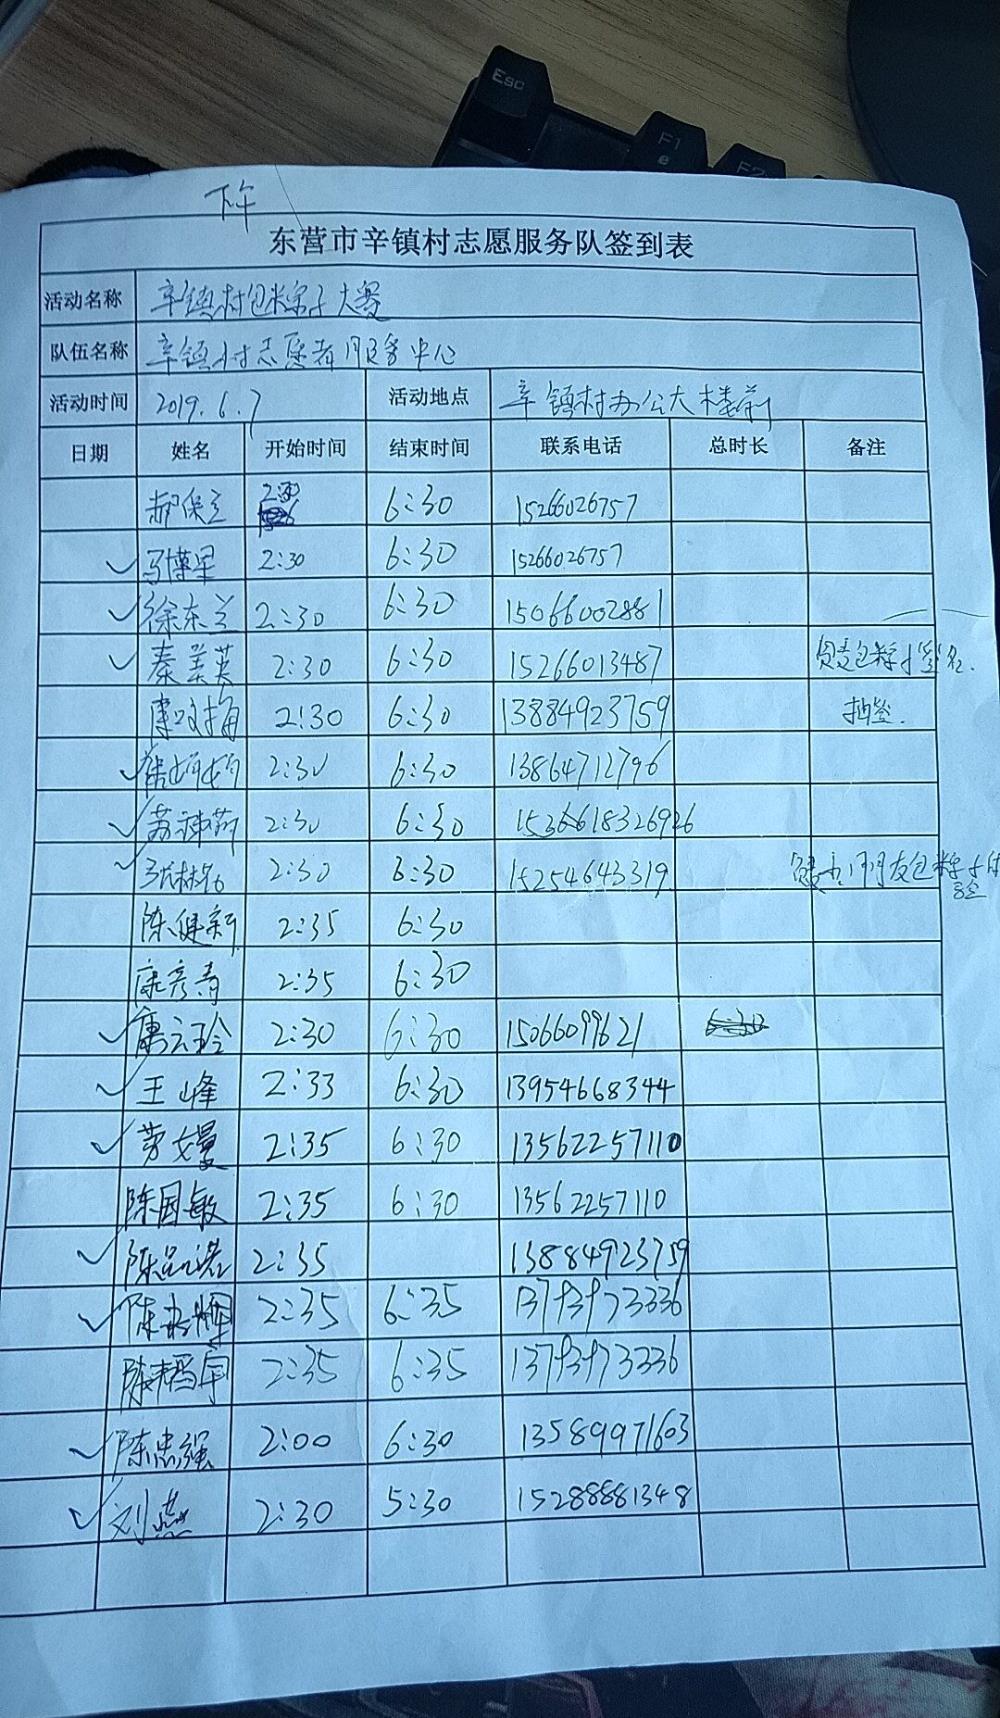 下午
东营市辛镇村志愿服务队签到表
活动名称 辛镇村包粽子大赛
队伍名称 辛镇村志愿者服务中心
活动时间 2019.6.7 活动地点 辛镇村办公大楼前
日期 姓名 开始时间 结束时间 联系电话 总时长 备注
郝保兰 2:30 6:30 15266026757
马博星 2:30 6:30 15266026757
徐东兰 2:30 6:30 15066002881
秦美英 2:30 6:30 15266013487 负责包粽子签名.
2:30 6:30 13884923759
2:30 6:30 13864712796
苏 2:30 6:30
2:30 6:30 15254643319
陈健新 2:35 6:30
康彦青 2:35 6:30
唐云玲 2:30 6:30 15066099621
王峰 2:33 6:30 13954668344
劳文曼 2:35 6:30 13562257110
陈国敏 2:35 6:30 13562257110
陈品诺 2:35 13884923759
陈 2:35 6:35
陈 2:35 6:35
陈忠强 2:00 6:30 13589971603
刘燕 2:30 5:30 15288881348
Esc
F1
e
F2